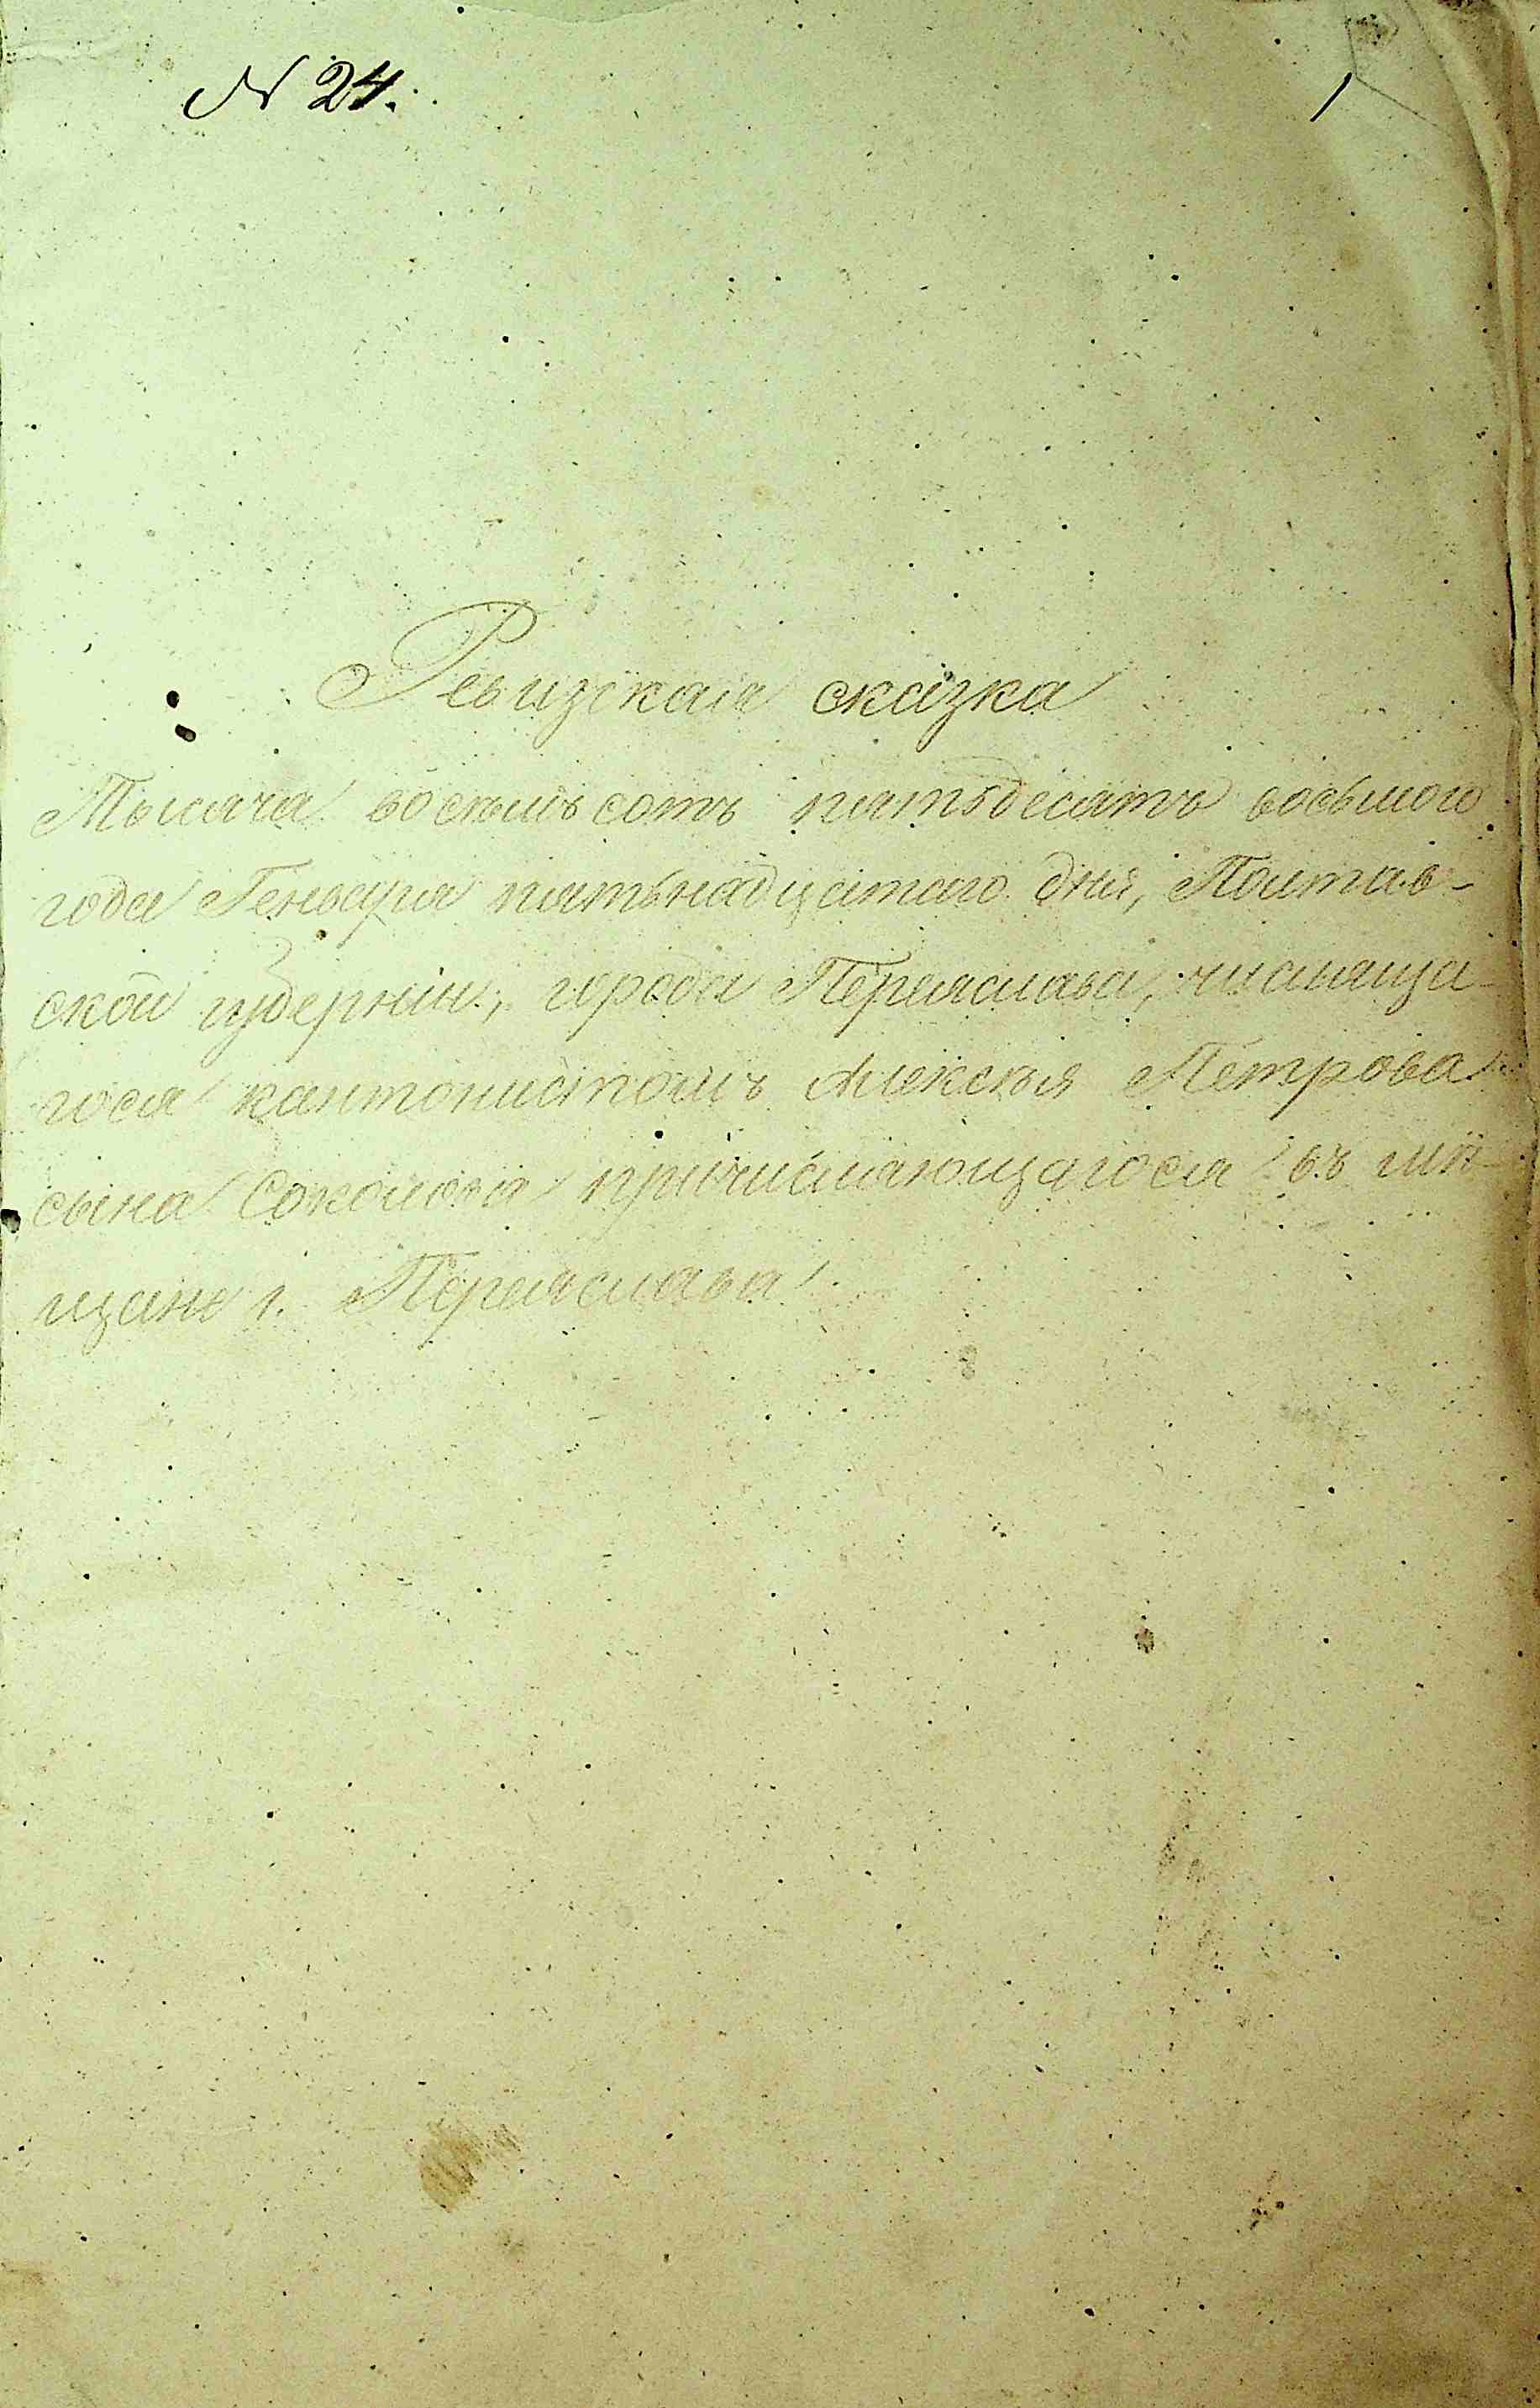 № 24.
1
Ревизская сказка
Тысяча восемьсотъ пятьдесятъ восьмого
года Генваря пятьнадцатаго дня, Полтав-
ской губерніи, города Переяслава, числяща-
гося кантонистомъ Алексѣя Петрова
сына причисляющагося въ мѣ-
щане г. Переяслава.